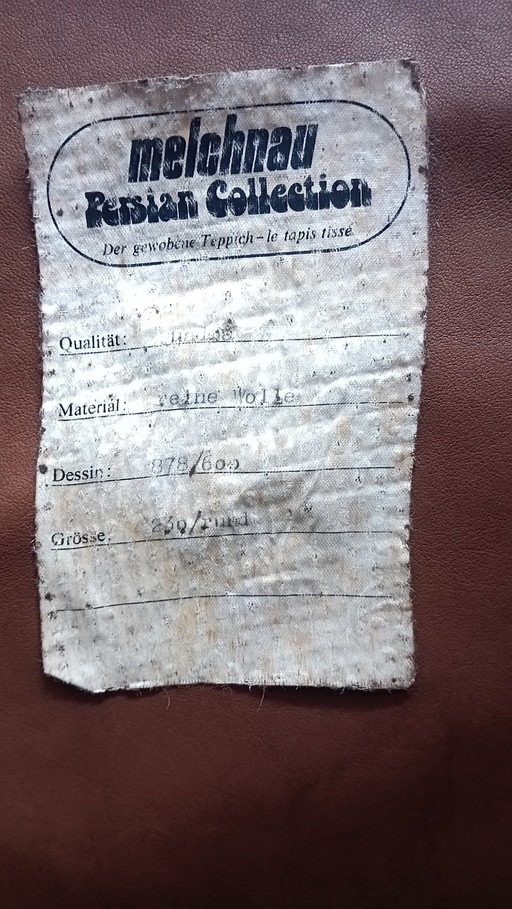 melchnau
Persian Collection
Der gewobene Teppich – le tapis tissé
Qualität:
Material: reine Wolle
Dessin: 878/600
Grösse: 230/rund